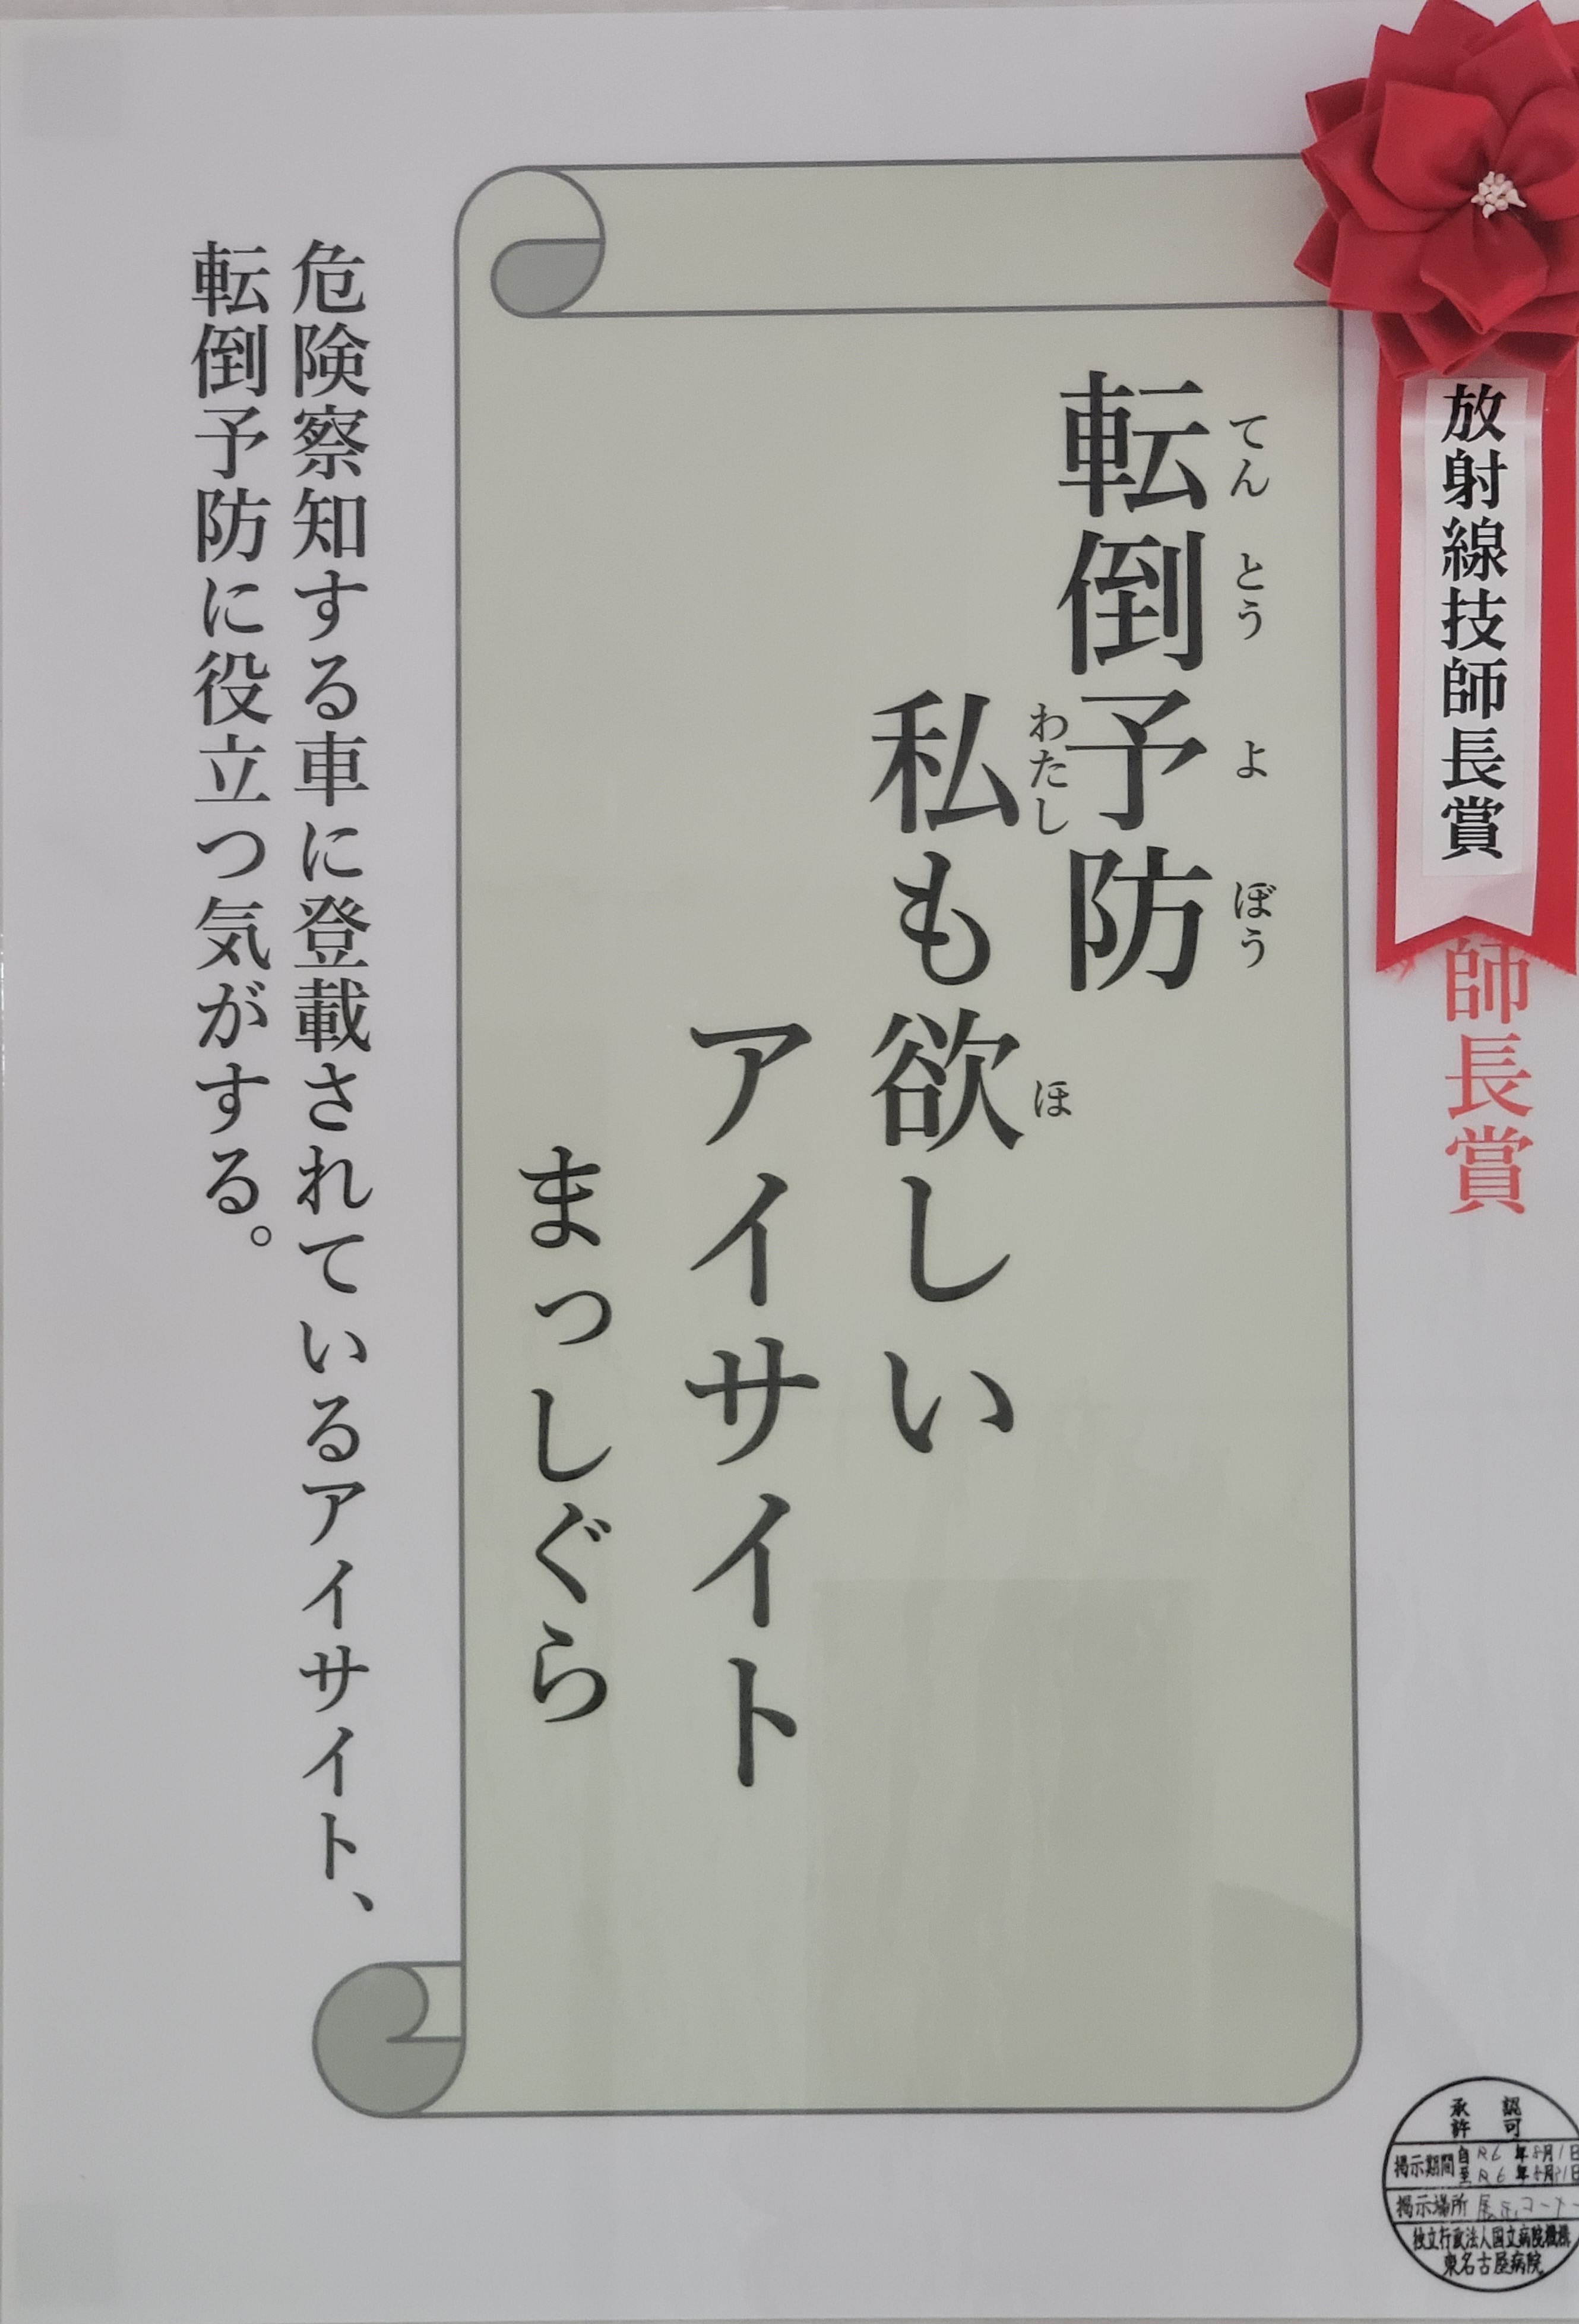 放射線技師長賞
師長賞
転倒予防
てんとうよぼう
私も欲しい
わたし ほ
アイサイト
まっしぐら
危険察知する車に登載されているアイサイト、
転倒予防に役立つ気がする。
承認
許可
掲示期間 自R6年8月1日
至R6年8月31日
掲示場所 展示コーナー
独立行政法人国立病院機構
東名古屋病院